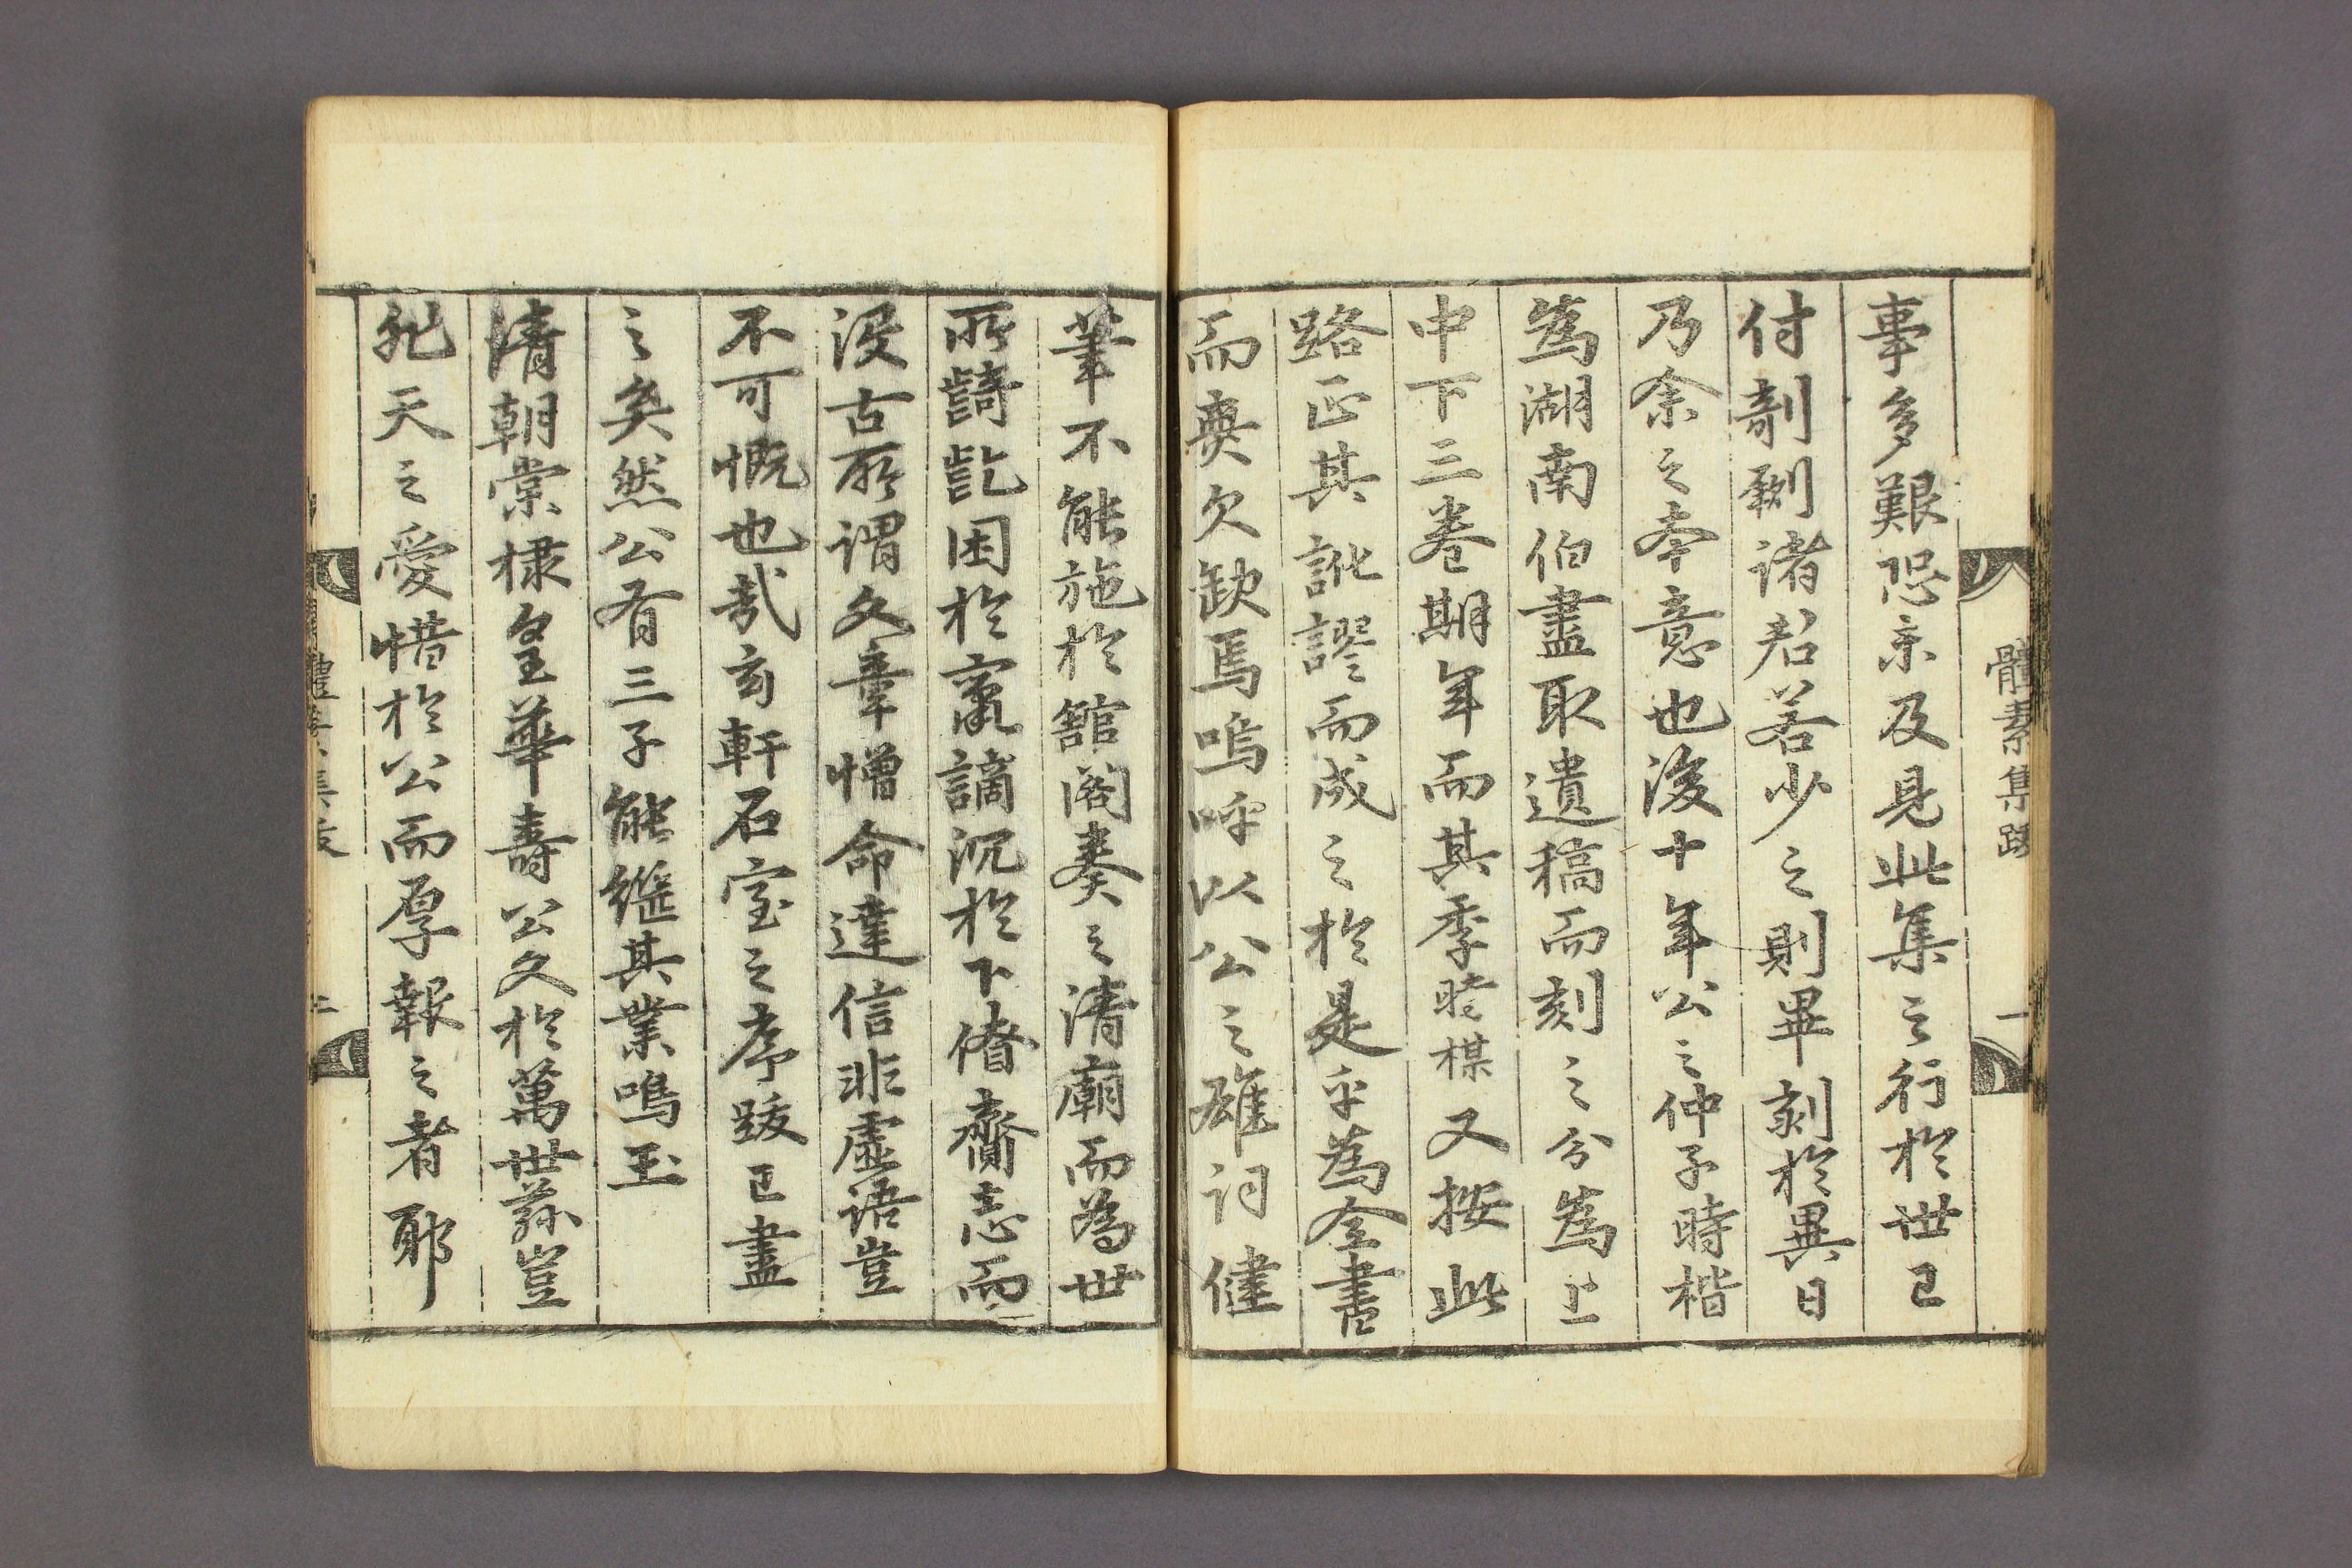 體素集跋 一
事多艱恐未及見此集之行於世已
付剞劂諸君若少之則畢刻於異日
乃余之本意也後十年公之仲子時楷
為湖南伯盡取遺稿而刻之分為上
中下三卷期年而其季時楳又按此
路正其訛謬而成之於是乎為全書
而無欠缺焉嗚呼以公之雄詞健
筆不能施於館閣奏之清廟而為世
所齮齕困於竄謫沉於下僚齎志而
沒古所謂文章憎命達信非虛語豈
不可慨也哉玄軒石室之序跋已盡
之矣然公有三子能継其業鳴玉
清朝棠棣皇華壽公文於萬世茲豈
非天之愛惜於公而厚報之者耶
二